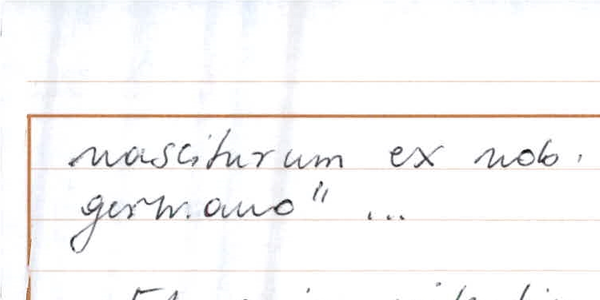 nasciturum ex nob.
germano" ...